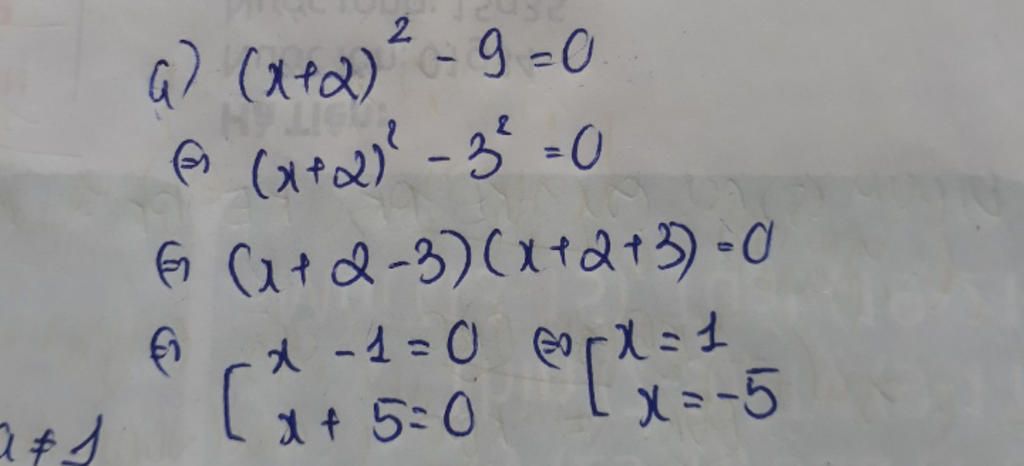 a) (x+2)² - 9 = 0
⇔ (x+2)² - 3² = 0
⇔ (x+2-3)(x+2+3) = 0
⇔ [ x - 1 = 0 ⇔ [ x = 1
x + 5 = 0 x = -5
≠ 1